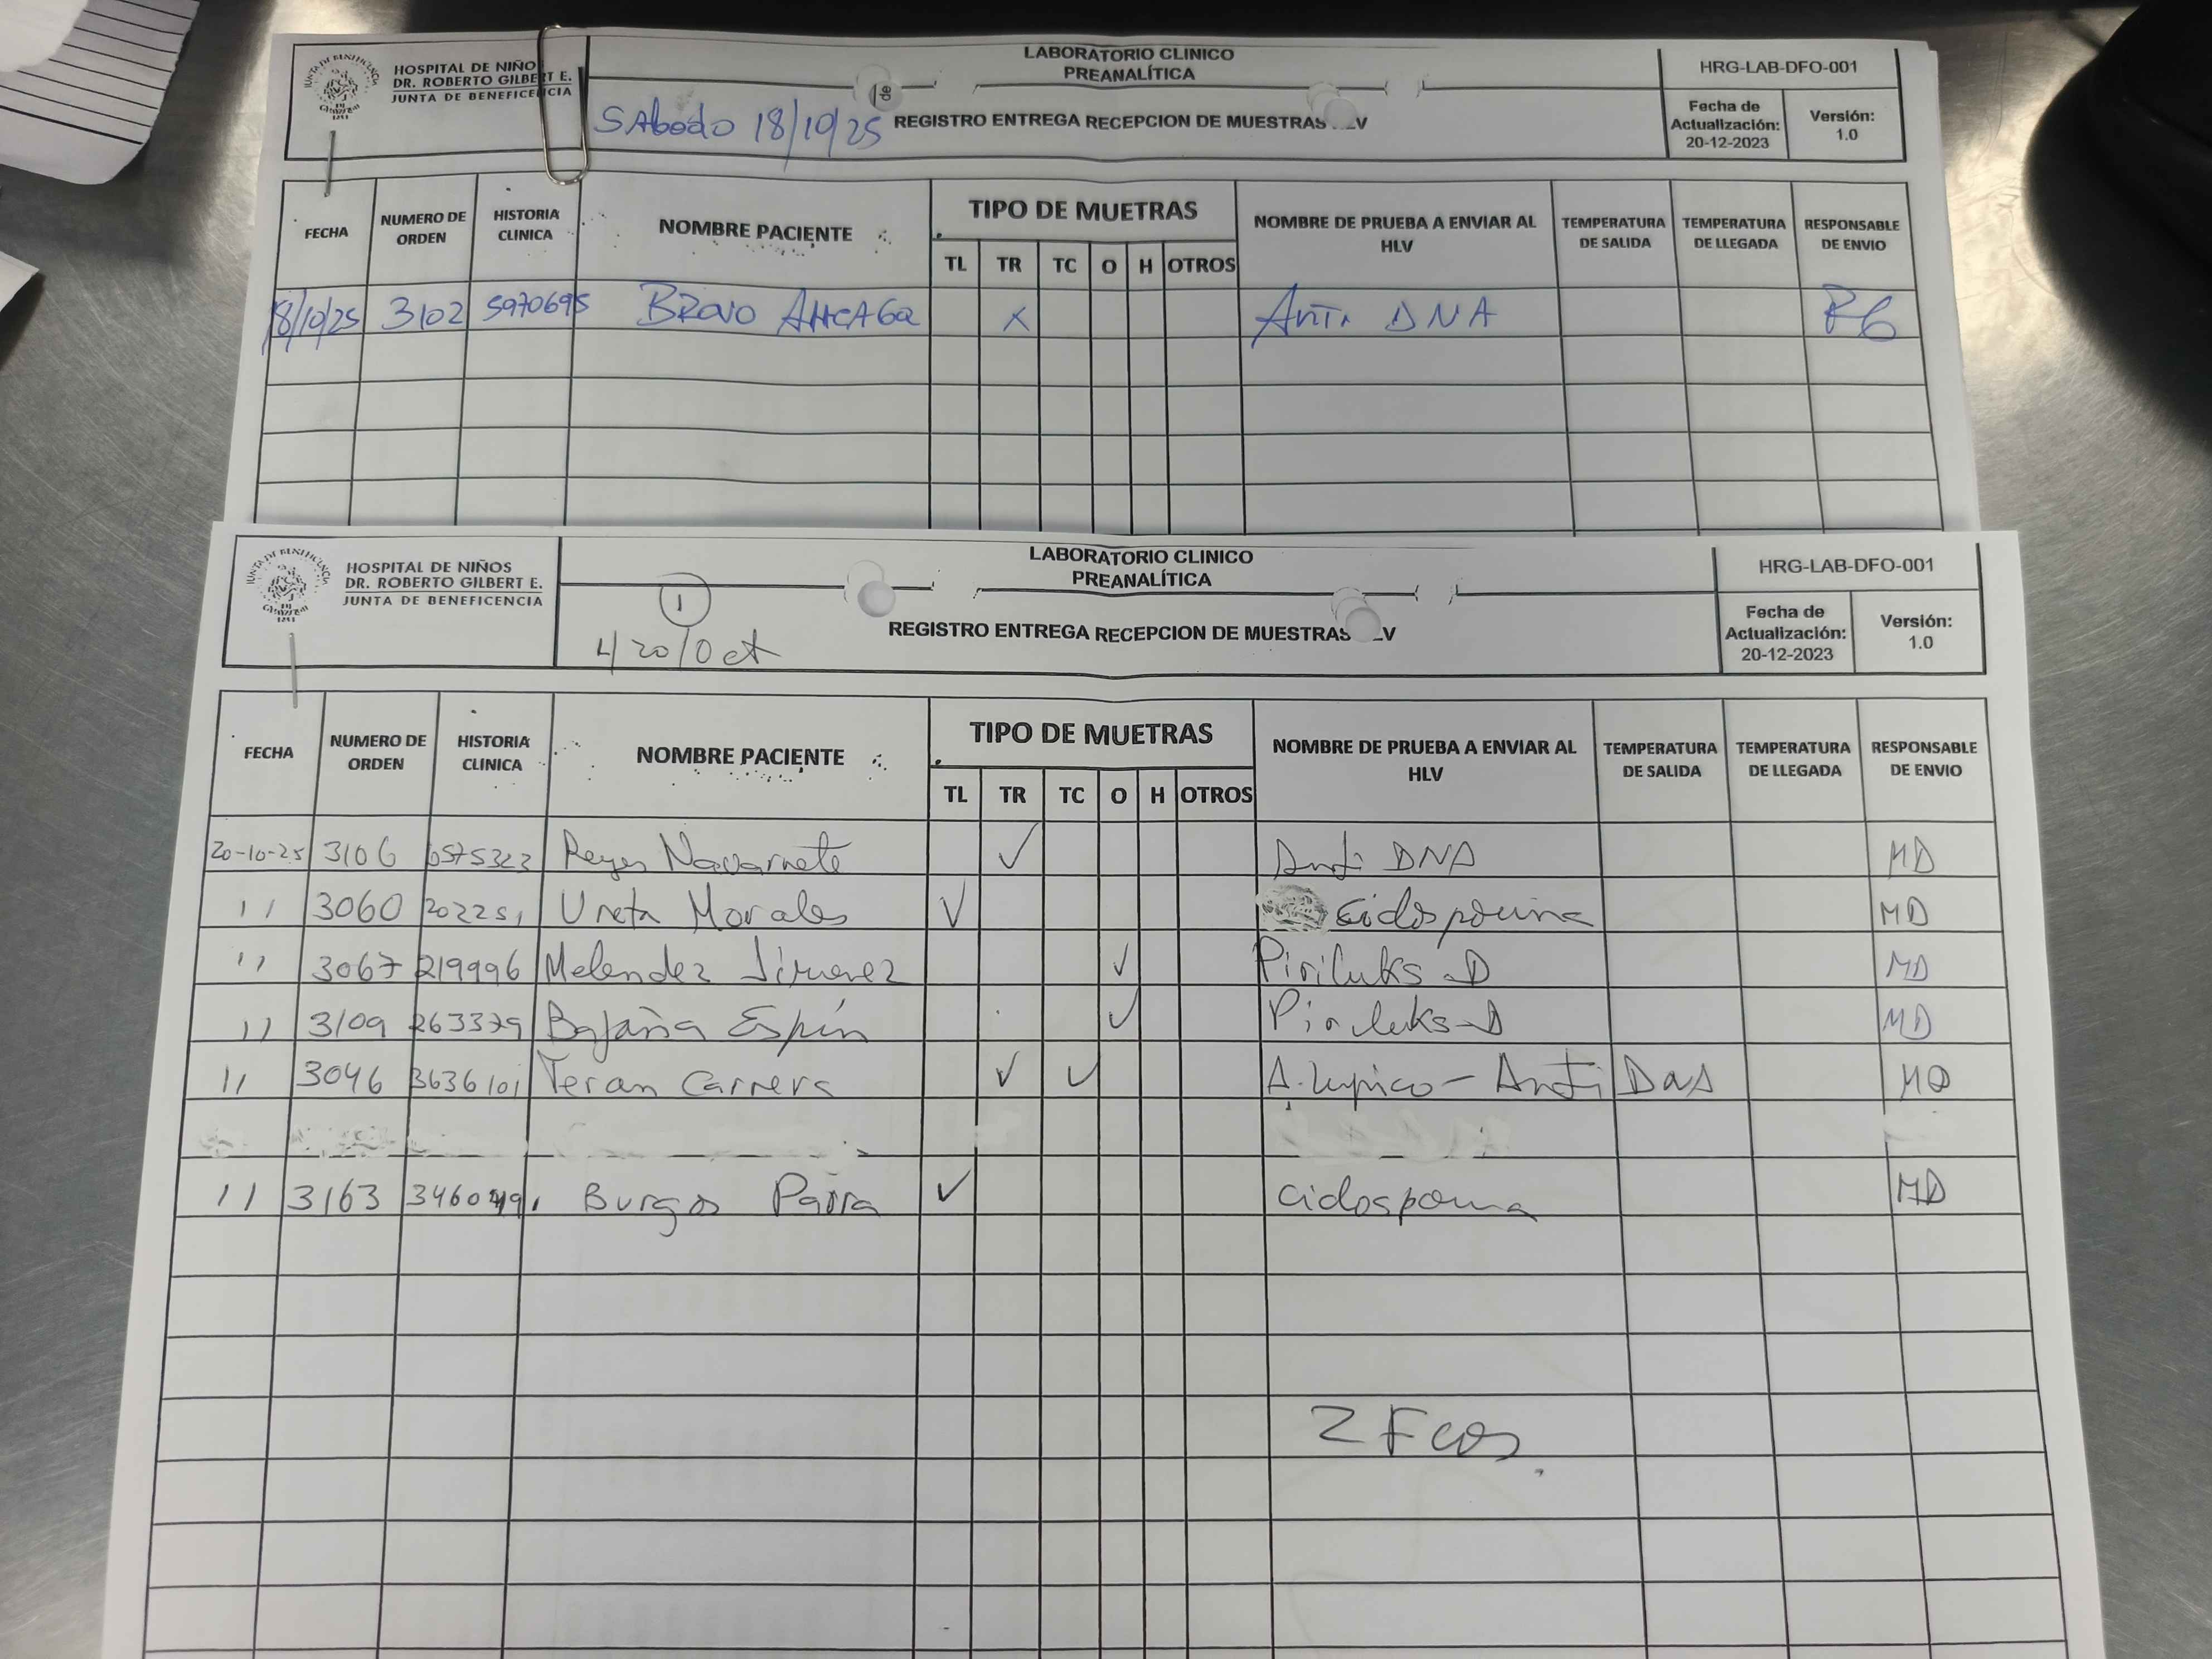 HOSPITAL DE NIÑO
DR. ROBERTO GILBERT E.
JUNTA DE BENEFICENCIA
LABORATORIO CLINICO
PREANALÍTICA
SAbado 18/10/25 REGISTRO ENTREGA RECEPCION DE MUESTRAS LV
HRG-LAB-DFO-001
Fecha de Actualización: 20-12-2023
Versión: 1.0
FECHA NUMERO DE ORDEN HISTORIA CLINICA NOMBRE PACIENTE TIPO DE MUETRAS NOMBRE DE PRUEBA A ENVIAR AL HLV TEMPERATURA DE SALIDA TEMPERATURA DE LLEGADA RESPONSABLE DE ENVIO
TL TR TC O H OTROS
18/10/25 3102 5970695 BRAVO X Anti DNA
HOSPITAL DE NIÑOS
DR. ROBERTO GILBERT E.
JUNTA DE BENEFICENCIA
LABORATORIO CLINICO
PREANALÍTICA
1
REGISTRO ENTREGA RECEPCION DE MUESTRAS LV
20/Oct
HRG-LAB-DFO-001
Fecha de Actualización: 20-12-2023
Versión: 1.0
FECHA NUMERO DE ORDEN HISTORIA CLINICA NOMBRE PACIENTE TIPO DE MUETRAS NOMBRE DE PRUEBA A ENVIAR AL HLV TEMPERATURA DE SALIDA TEMPERATURA DE LLEGADA RESPONSABLE DE ENVIO
TL TR TC O H OTROS
20-10-25 3106 6575323 Reyes Navarrete ✓ Anti DNA MD
11 3060 202251 Ureta Morales ✓ MD
11 3067 219996 Melendez Jimenez ✓ Piriluks-D MD
11 3109 263379 Bajaña Espín ✓ Piriluks-D MD
11 3046 3636101 Teran Carrera ✓ ✓ A. Lupico - Anti DNA MD
11 3163 Burgos Parra ✓ MD
2 Fcos